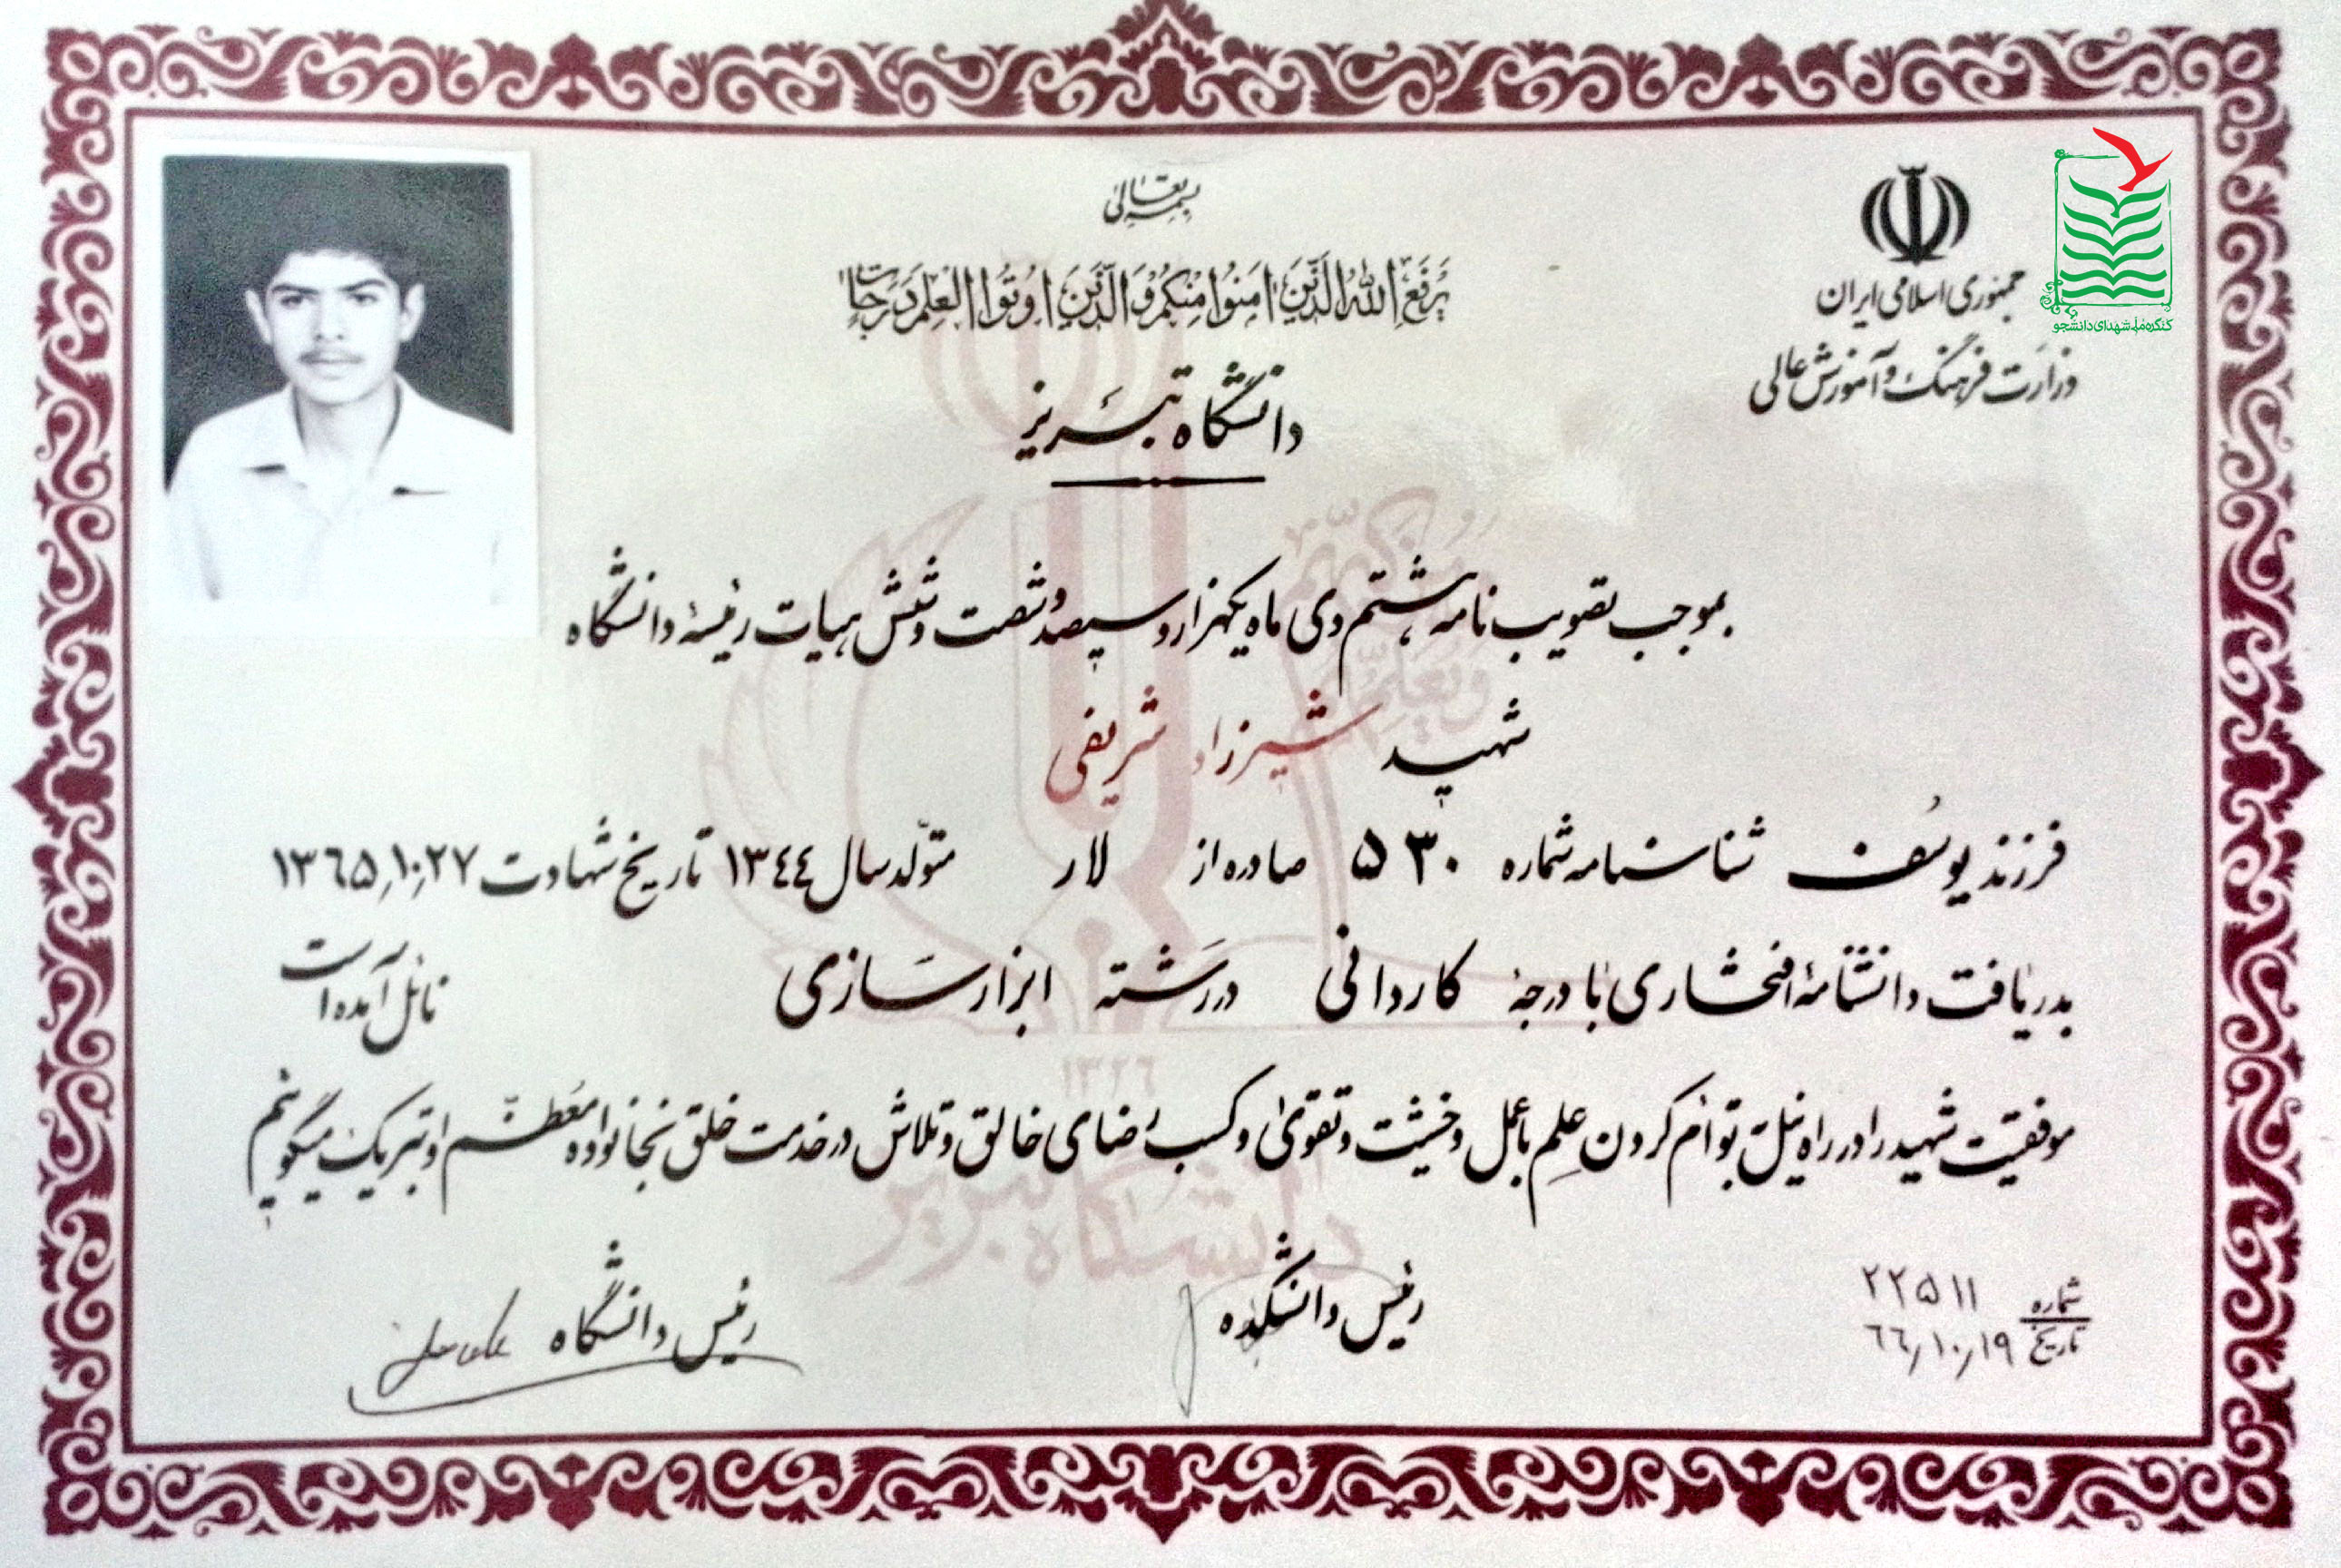 بسمه تعالی
یَرفَعِ اللهُ الَّذینَ امَنُوا مِنکُم وَ الَّذینَ اُوتُوا العِلمَ دَرَجاتٍ
جمهوری اسلامی ایران
وزارت فرهنگ و آموزش عالی
کنگره ملی شهدای دانشجو
دانشگاه تبریز
بموجب تصویب نامه هشتم دی ماه یکهزار و سیصد و شصت و شش هیات رئیسهٔ دانشگاه
شهید شیرزاد شریفی
فرزند یوسف شناسنامه شماره ۵۳۰ صادره از لار متولد سال ۱۳۴۴ تاریخ شهادت ۱۳۶۵٫۱۰٫۲۷
بدریافت دانشنامهٔ افتخاری با درجهٔ کاردانی در رشته ابزارسازی نائل آمده است
موفقیت شهید را در راه نیل بتوأم کردن علم با عمل و خشیت و تقوی و کسب رضای خالق و تلاش در خدمت خلق بخانواده معظم او تبریک میگوییم
۱۳۲۶
دانشگاه تبریز
شماره ۲۲۵۱۱
تاریخ ۶۶٫۱۰٫۱۹
رئیس دانشکده
رئیس دانشگاه